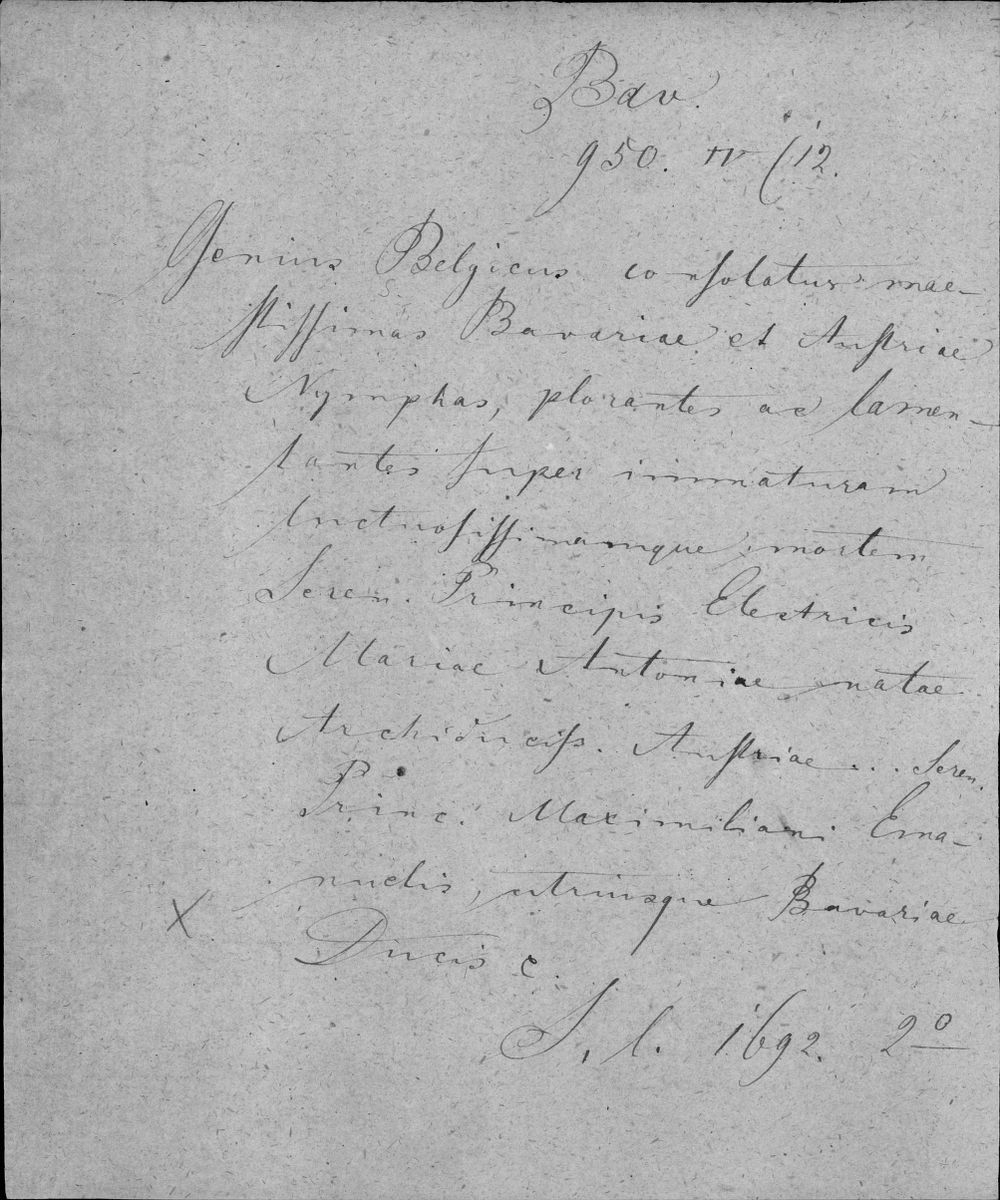 Bav.
950. IV (12.
Genius Belgicus consolatur mae-
stissimas Bavariae et Austriae
Nymphas, plorantes ac lamen-
tantes super immaturam
luctuosissimamque mortem
Seren. Principis Electricis
Mariae Antoniae natae
Archiduciss. Austriae ... Seren.
Princ. Maximiliani Ema-
nuelis, utriusque Bavariae
X Ducis c.
S. l. 1692. 2º